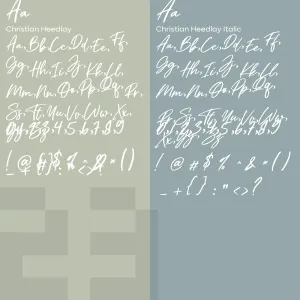 Aa
Christian Heedlay
Aa, Bb, Cc, Dd, Ee, Ff,
Gg, Hh, Ii, Jj, Kk, Ll,
Mm, Nn, Oo, Pp, Qq, Rr,
Ss, Tt, Uu, Vv, Ww, Xx,
Yy, Zz
3, 4, 5, 6, 7, 8, 9
Aa
Christian Heedlay Italic
Aa, Bb, Cc, Dd, Ee, Ff,
Gg, Hh, Ii, Jj, Kk, Ll,
Mm, Nn, Oo, Pp, Qq,
Rr, Ss, Tt, Uu, Vv, Ww,
Xx, Yy, Zz
! @ # $ % ~ & * ( )
_ + { } : " < > ?